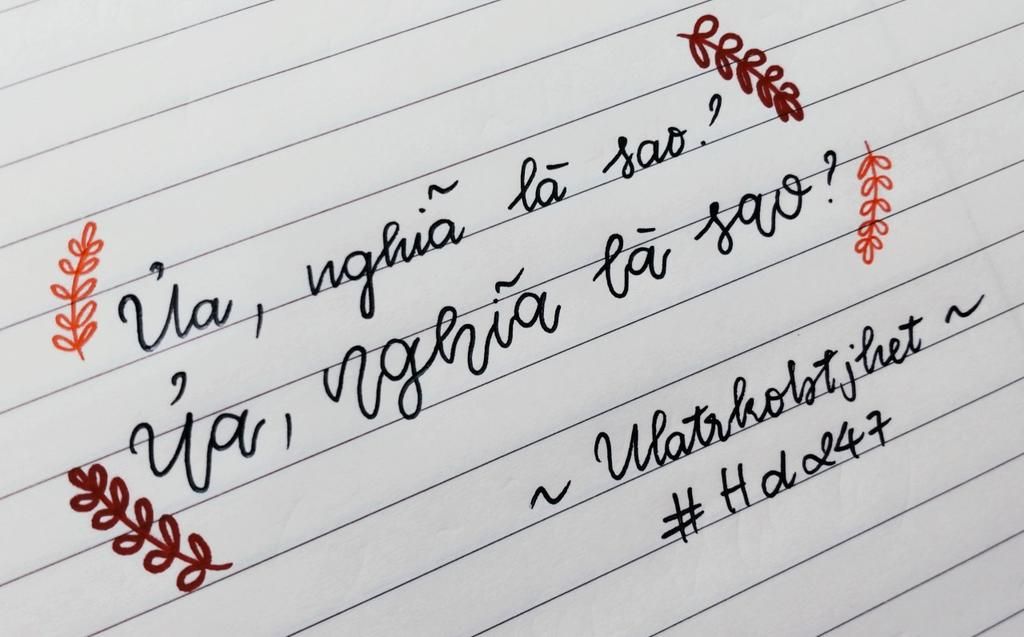 Ủa, nghĩa là sao?
Ủa, nghĩa là sao?
~ Ulatrkolstjhet ~
#Hd247